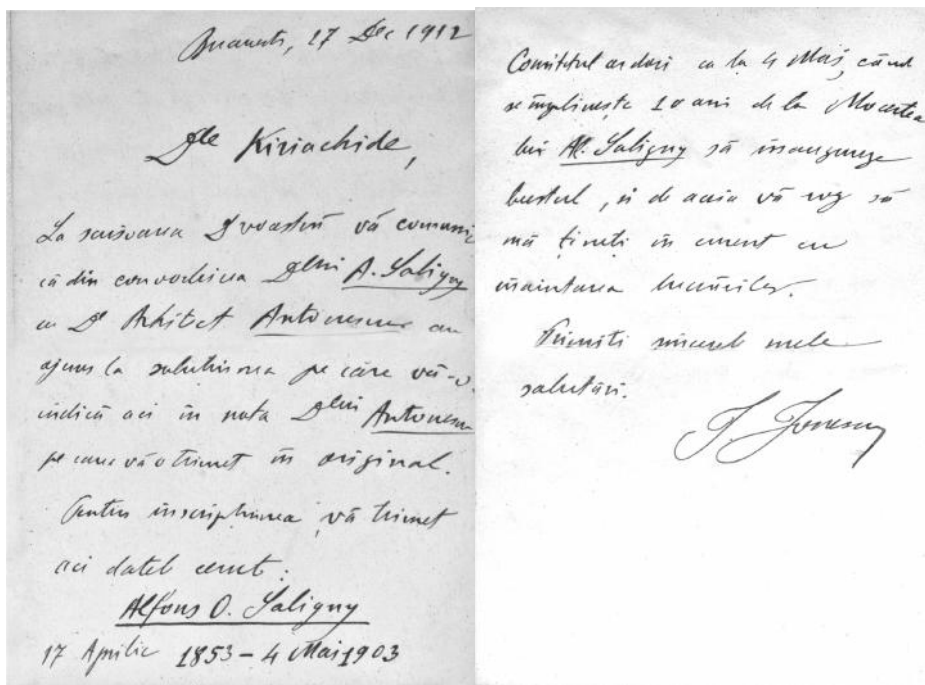 București, 17 Dec 1912
Dle Kiriachide,
La scrisoarea Dvoastră vă comunic
că din convorbirea Dlui A. Saligny
cu Dl Arhitect Antonescu au
ajuns la soluțiunea pe care vă-o
indică aci în nota Dlui Antonescu
pe care vă o trimet în original.
Pentru inscripțiunea vă trimet
aci datele cerute:
Alfons O. Saligny
17 Aprilie 1853 – 4 Mai 1903
Comitetul ar dori ca la 4 Mai, când
se împlinește 10 ani de la Moartea
lui Al. Saligny să inaugureze
bustul, și de aceia vă rog să
mă țineți în curent cu
înaintarea lucrărilor.
Primiți sincerele mele
salutări.
I. Ionescu